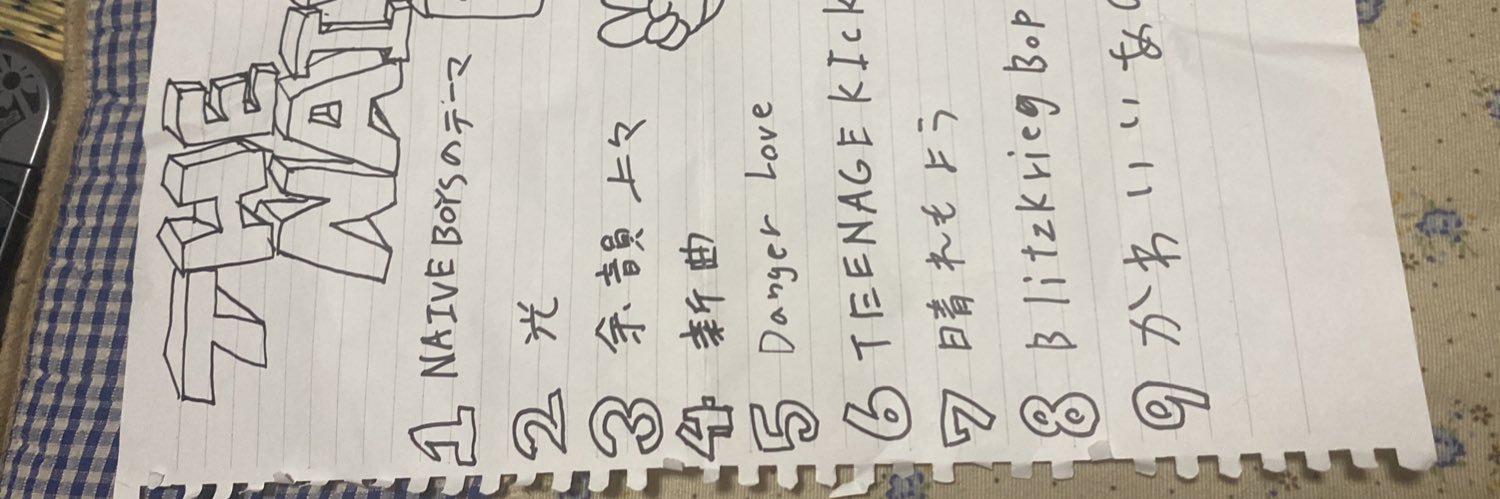 THE
NAI
1 NAIVE BOYSのテーマ
2 光
3 余韻上々
4 新曲
5 Danger Love
6 TEENAGE KICK
7 晴れもよう
8 Blitzkrieg Bop
9 かわいいあ